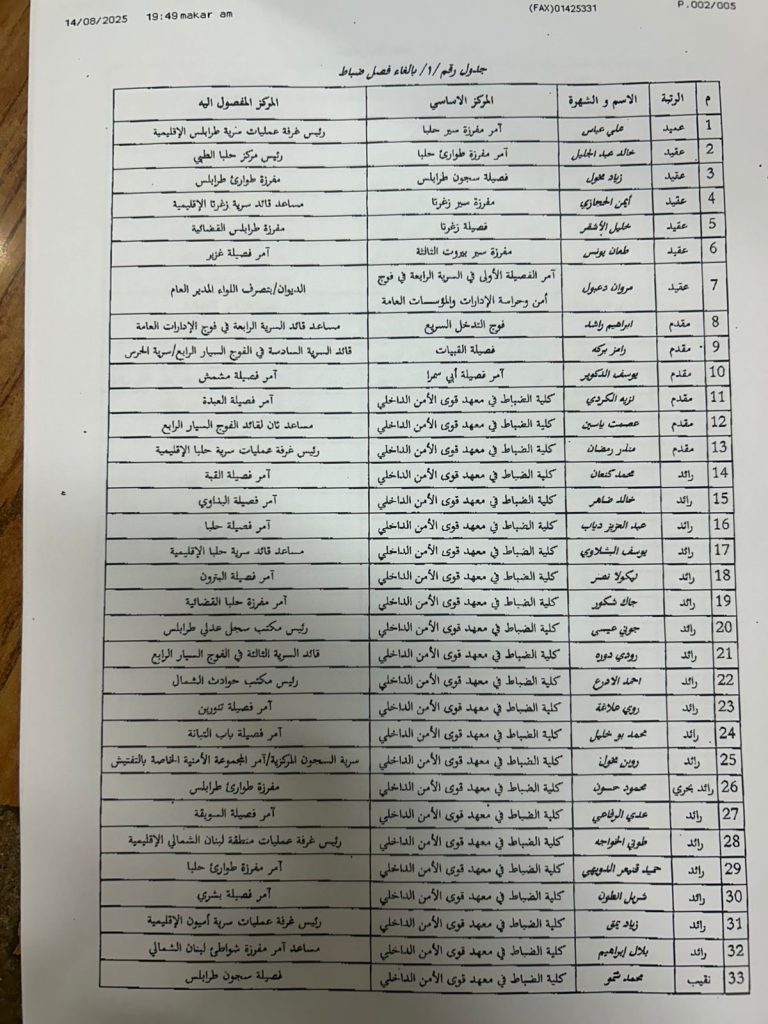 14/08/2025 19:49 makar am (FAX)01425331 P.002/005
جدول رقم /١/ بالغاء فصل ضباط
م الرتبة الاسم و الشهرة المركز الاساسي المركز المفصول اليه
1 عميد علي عباس آمر مفرزة سير حلبا رئيس غرفة عمليات سرية طرابلس الإقليمية
2 عقيد خالد عبد الجليل آمر مفرزة طوارئ حلبا رئيس مركز حلبا الطبي
3 عقيد زياد مخول فصيلة سجون طرابلس مفرزة طوارئ طرابلس
4 عقيد أيمن الحجازي مفرزة سير زغرتا مساعد قائد سرية زغرتا الإقليمية
5 عقيد خليل الأشقر فصيلة زغرتا مفرزة طرابلس القضائية
6 عقيد طعان يونس مفرزة سير بيروت الثالثة آمر فصيلة غزير
7 عقيد مروان دعبول آمر الفصيلة الأولى في السرية الرابعة في فوج أمن وحراسة الإدارات والمؤسسات العامة الديوان/بتصرف اللواء المدير العام
8 مقدم ابراهيم راشد فوج التدخل السريع مساعد قائد السرية الرابعة في فوج الإدارات العامة
9 مقدم رامز بركه فصيلة القبيات قائد السرية السادسة في الفوج السيار الرابع/سرية الحرس
10 مقدم يوسف الدكوير آمر فصيلة أبي سمرا آمر فصيلة مشمش
11 مقدم نزيه الكردي كلية الضباط في معهد قوى الأمن الداخلي آمر فصيلة العبدة
12 مقدم عصمت ياسين كلية الضباط في معهد قوى الأمن الداخلي مساعد ثان لقائد الفوج السيار الرابع
13 مقدم منذر رمضان كلية الضباط في معهد قوى الأمن الداخلي رئيس غرفة عمليات سرية حلبا الإقليمية
14 رائد محمد كنعان كلية الضباط في معهد قوى الأمن الداخلي آمر فصيلة القبة
15 رائد خالد ضاهر كلية الضباط في معهد قوى الأمن الداخلي آمر فصيلة البداوي
16 رائد عبد العزيز دياب كلية الضباط في معهد قوى الأمن الداخلي آمر فصيلة حلبا
17 رائد يوسف البشلاوي كلية الضباط في معهد قوى الأمن الداخلي مساعد قائد سرية حلبا الإقليمية
18 رائد نيكولا نصر كلية الضباط في معهد قوى الأمن الداخلي آمر فصيلة البترون
19 رائد جاك شكور كلية الضباط في معهد قوى الأمن الداخلي آمر مفرزة حلبا القضائية
20 رائد جوني عيسى كلية الضباط في معهد قوى الأمن الداخلي رئيس مكتب سجل عدلي طرابلس
21 رائد رودي دوره كلية الضباط في معهد قوى الأمن الداخلي قائد السرية الثالثة في الفوج السيار الرابع
22 رائد احمد الادرع كلية الضباط في معهد قوى الأمن الداخلي رئيس مكتب حوادث الشمال
23 رائد روي علاغة كلية الضباط في معهد قوى الأمن الداخلي آمر فصيلة تنورين
24 رائد محمد بو خليل كلية الضباط في معهد قوى الأمن الداخلي آمر فصيلة باب التبانة
25 رائد روبن مخول كلية الضباط في معهد قوى الأمن الداخلي سرية السجون المركزية/آمر المجموعة الأمنية الخاصة بالتفتيش
26 رائد بحري محمود حسون كلية الضباط في معهد قوى الأمن الداخلي مفرزة طوارئ طرابلس
27 رائد عدي الرفاعي كلية الضباط في معهد قوى الأمن الداخلي آمر فصيلة السويقة
28 رائد طوني الخواجه كلية الضباط في معهد قوى الأمن الداخلي رئيس غرفة عمليات منطقة لبنان الشمالي الإقليمية
29 رائد حميد قنيعر الدويهي كلية الضباط في معهد قوى الأمن الداخلي آمر مفرزة طوارئ حلبا
30 رائد شربل الطون كلية الضباط في معهد قوى الأمن الداخلي آمر فصيلة بشري
31 رائد زياد يمق كلية الضباط في معهد قوى الأمن الداخلي رئيس غرفة عمليات سرية أميون الإقليمية
32 رائد بلال إبراهيم كلية الضباط في معهد قوى الأمن الداخلي مساعد آمر مفرزة شواطئ لبنان الشمالي
33 نقيب محمد كلية الضباط في معهد قوى الأمن الداخلي فصيلة سجون طرابلس